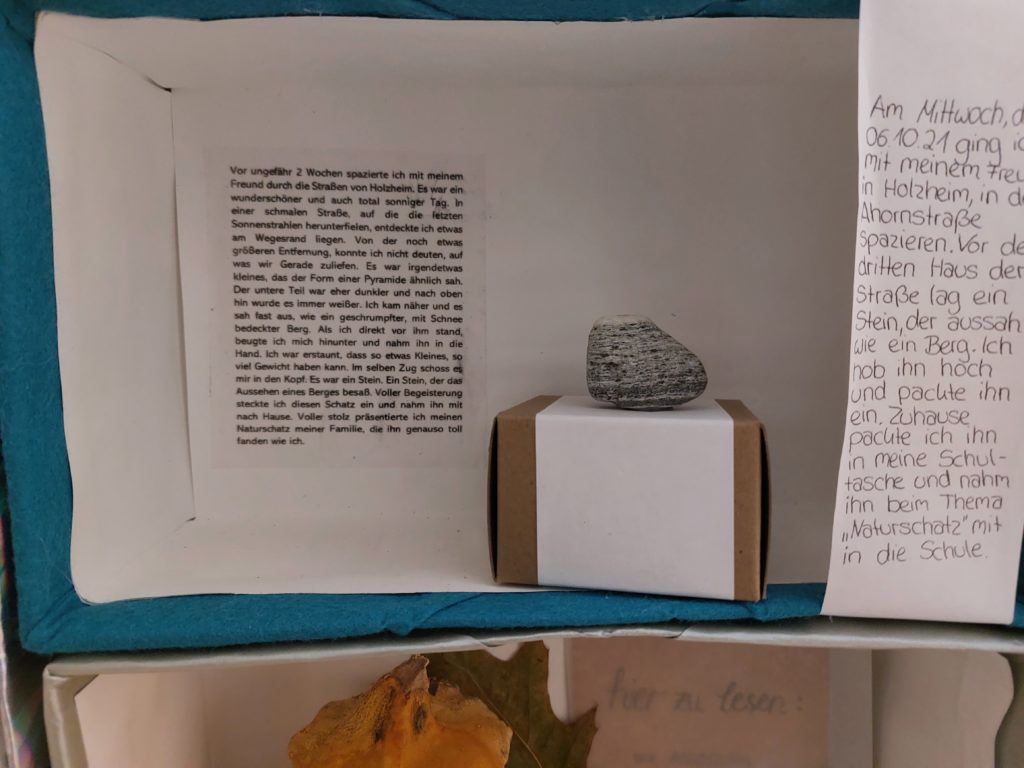 Vor ungefähr 2 Wochen spazierte ich mit meinem
Freund durch die Straßen von Holzheim. Es war ein
wunderschöner und auch total sonniger Tag. In
einer schmalen Straße, auf die die letzten
Sonnenstrahlen herunterfielen, entdeckte ich etwas
am Wegesrand liegen. Von der noch etwas
größeren Entfernung, konnte ich nicht deuten, auf
was wir Gerade zuliefen. Es war irgendetwas
kleines, das der Form einer Pyramide ähnlich sah.
Der untere Teil war eher dunkler und nach oben
hin wurde es immer weißer. Ich kam näher und es
sah fast aus, wie ein geschrumpfter, mit Schnee
bedeckter Berg. Als ich direkt vor ihm stand,
beugte ich mich hinunter und nahm ihn in die
Hand. Ich war erstaunt, dass so etwas Kleines, so
viel Gewicht haben kann. Im selben Zug schoss es
mir in den Kopf. Es war ein Stein. Ein Stein, der das
Aussehen eines Berges besaß. Voller Begeisterung
steckte ich diesen Schatz ein und nahm ihn mit
nach Hause. Voller stolz präsentierte ich meinen
Naturschatz meiner Familie, die ihn genauso toll
fanden wie ich.
Am Mittwoch, d
06.10.21 ging ic
mit meinem Freu
in Holzheim, in de
Ahornstraße
spazieren. Vor de
dritten Haus der
Straße lag ein
Stein, der aussah
wie ein Berg. Ich
hob ihn hoch
und packte ihn
ein. Zuhause
packte ich ihn
in meine Schul-
tasche und nahm
ihn beim Thema
„Naturschatz" mit
in die Schule.
hier zu lesen: